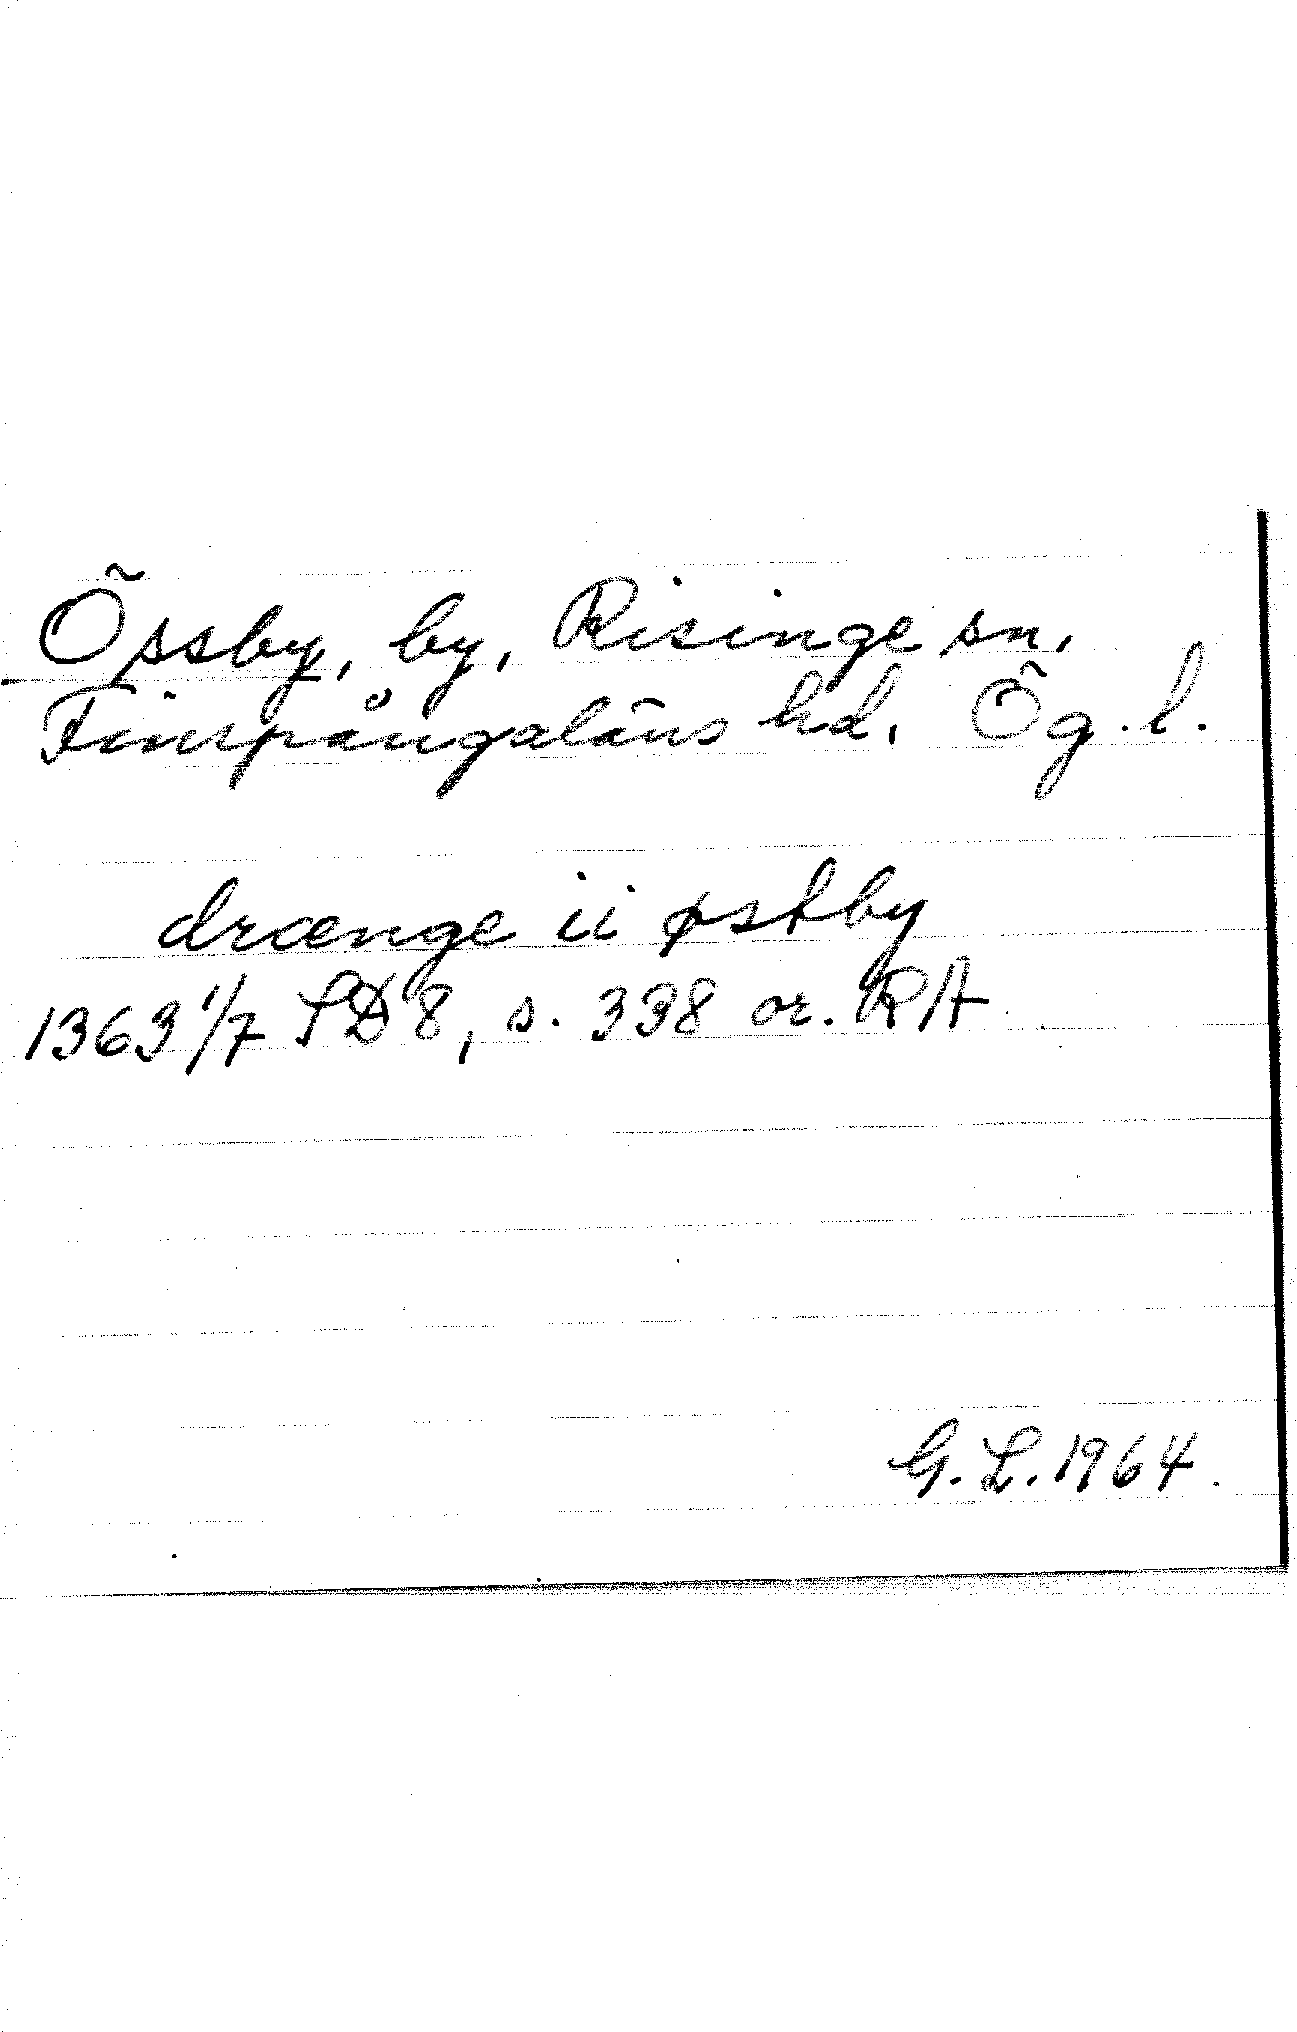 Össby, by, Risinge sn,
Finspångaläns hd, Ög. l.
drænge ii østby
1363 1/7 SD 8, s. 338 or. RA
G. L. 1964.